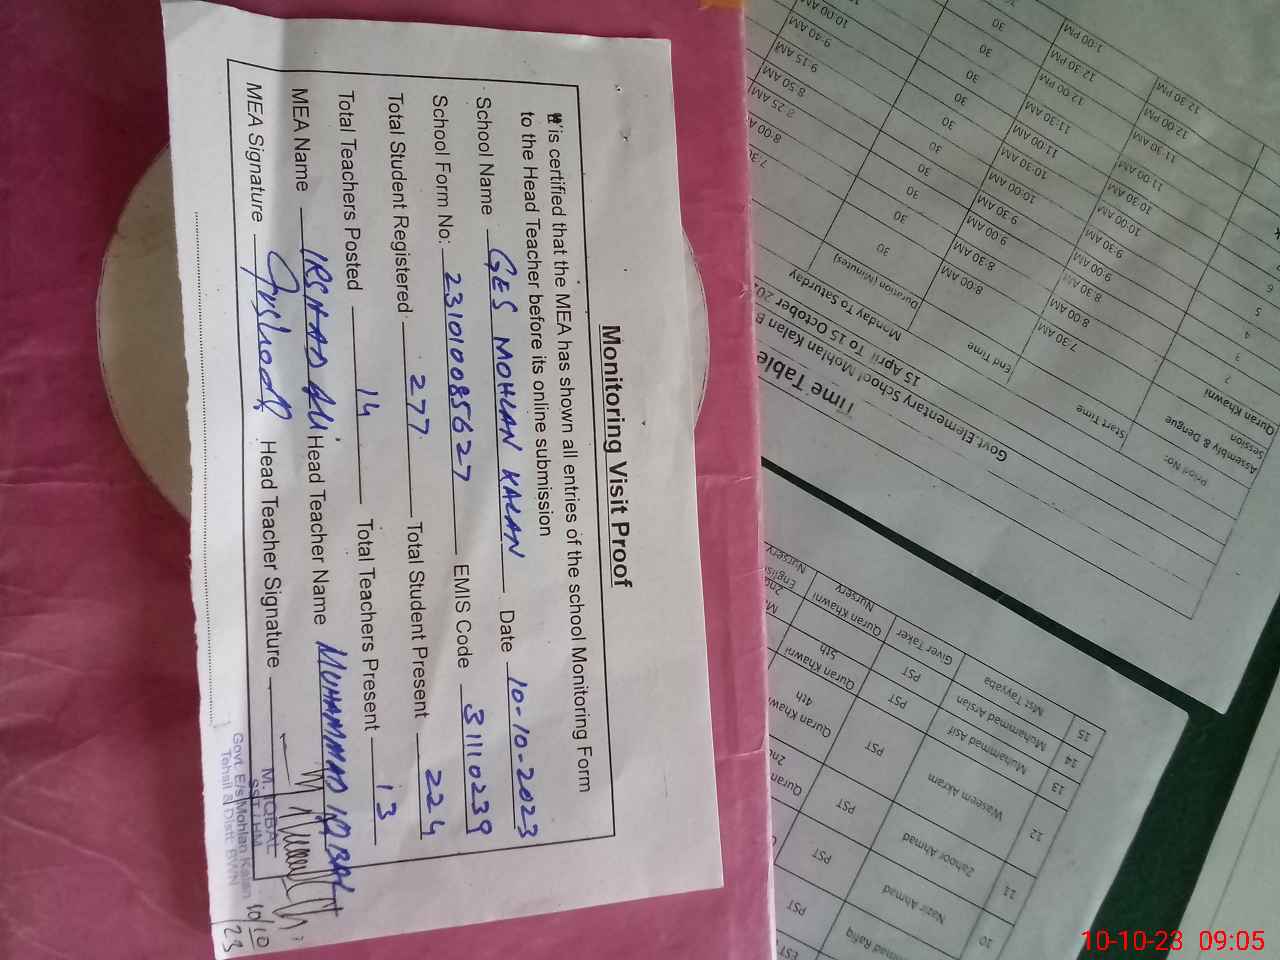 Monitoring Visit Proof
It is certified that the MEA has shown all entries of the school Monitoring Form
to the Head Teacher before its online submission
School Name GES MOHLAN KALAN Date 10-10-2023
School Form No: 231010085627 EMIS Code 31110239
Total Student Registered: 277 Total Student Present 224
Total Teachers Posted 14 Total Teachers Present 13
MEA Name IRSHAD ALI Head Teacher Name MUHAMMAD IQBAL
MEA Signature Head Teacher Signature
M. IQBAL
SST / HM
Govt. E/s Mohlan Kalan
Tehsil & Distt. BWN
10/10/23
Time Table
Govt.Elementary School Mohlan Kalan B
15 April To 15 October 20
Monday To Saturday
Start Time
End Time
Duration (Minutes)
Assembly & Dengue
Session
Quran Khawni
7:30 AM
8:00 AM
30
8:00 AM
8:30 AM
30
3
8:30 AM
9:00 AM
30
4
9:00 AM
9:30 AM
30
5
9:30 AM
10:00 AM
30
6
10:00 AM
10:30 AM
30
10:30 AM
11:00 AM
30
11:00 AM
11:30 AM
30
11:30 AM
12:00 PM
12:00 PM
12:30 PM
12:30 PM
1:00 PM
8:00 A
8:25 AM
8:50 AM
9:15 AM
9:40 AM
10:00 AM
15 Mst Tayyaba Giver Taker Nursery
14 Muhammad Arslan PST Quran Khawni
13 Muhammad Asif PST 5th Quran Khawni
12 Waseem Akram PST 4th Quran Khawn
11 Zahoor Ahmad PST 2nd Quran
10 Nazir Ahmad PST
mad Rafiq PST
EST
10-10-23 09:05